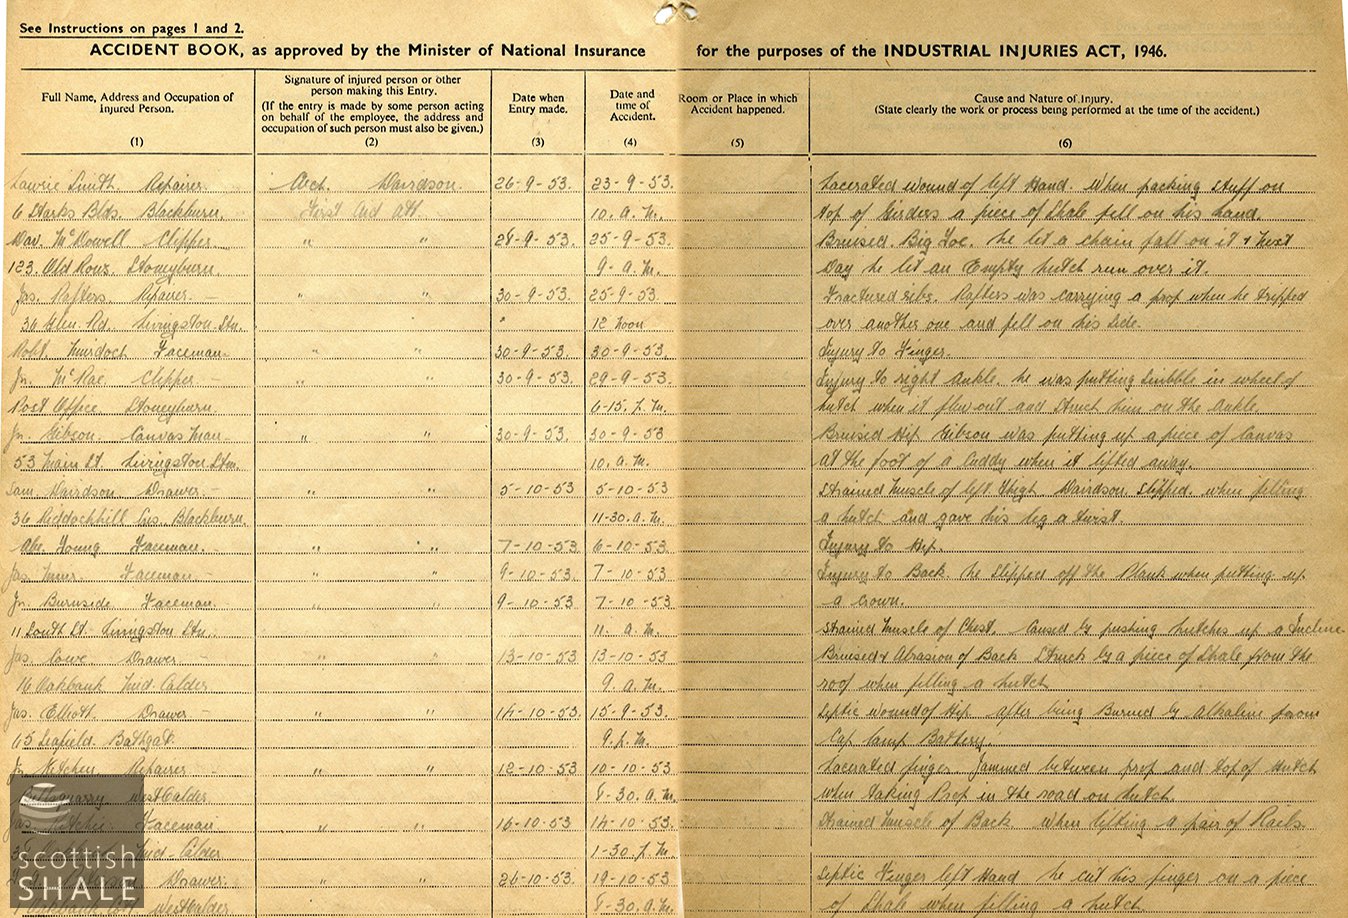 See Instructions on pages 1 and 2.
ACCIDENT BOOK, as approved by the Minister of National Insurance for the purposes of the INDUSTRIAL INJURIES ACT, 1946.
Full Name, Address and Occupation of Injured Person. (1)
Signature of injured person or other person making this Entry. (If the entry is made by some person acting on behalf of the employee, the address and occupation of such person must also be given.) (2)
Date when Entry made. (3)
Date and time of Accident. (4)
Room or Place in which Accident happened. (5)
Cause and Nature of Injury. (State clearly the work or process being performed at the time of the accident.) (6)
Lawrie Smith Repairer. Arch. Davidson. 26-9-53. 23-9-53. Lacerated wound of left Hand. When packing stuff on
6 Starks Blds. Blackburn. First Aid Att. 10. a.m. top of Girders a piece of Shale fell on his hand.
Dav. McDowell Clipper. " " 28-9-53. 25-9-53. Bruised. Big Toe. he let a chain fall on it & next
123. Old Rows. Stoneyburn 9- a.m. Day he let an Empty hutch run over it.
Jas. Rafters. Repairer. - " " 30-9-53. 25-9-53. Fractured ribs. Rafters was carrying a prop when he tripped
36 Glen. Rd. Livingston Stn. " 12 noon over another one and fell on his side.
Robt. Murdoch Faceman. " " 30-9-53. 30-9-53. Injury to Finger.
Jn. McRae. Clipper. - " " 30-9-53. 29-9-53. Injury to right ankle. he was putting Snibble in wheel of
Post Office. Stoneyburn. 6-15. p.m. hutch when it flew out and struck him on the ankle.
Jn. Gibson. Canvas Man. " " 30-9-53. 30-9-53 Bruised Hip. Gibson was putting up a piece of Canvas
53 Main St. Livingston Stn. 10. a.m. at the foot of a Cuddy when it lifted away.
Sam. Davidson Drawer. - " " 5-10-53 5-10-53 Strained Muscle of left thigh. Davidson. slipped. when filling
36 Riddochhill Blackburn. 11-30. a.m. a hutch and gave his leg a twist.
Abe. Young Faceman. - " " 7-10-53 6-10-53. Injury to Hip.
Jas. Faceman. " " 9-10-53. 7-10-53 Injury to Back. he slipped off the Plank when putting up
Jn. Burnside. Faceman. - " " 9-10-53 7-10-53. a crown.
11 South St. Livingston Stn. 11. a.m. Strained Muscle of Chest. Caused by pushing hutches up a Incline.
Jas. Lowe. Drawer. " " 13-10-53 13-10-53 Bruised & Abrasion of Back Struck by a piece of Shale from the
16 Oakbank Mid-Calder 9. a.m. roof when filling a hutch
Jas. Elliott. Drawer - " " 14-10-53. 15-9-53. Septic wound of Hip after being Burned by alkaline from
65 Leafield. Bathgate. 9. p.m. Cap lamp Battery.
Jn. Repairer - " " 12-10-53 10-10-53 Lacerated finger. Jammed between prop and top of Hutch
West Calder 8-30. a.m. when taking Prop in the road on hutch.
Jas. Ritchie Faceman " " 16-10-53 14-10-53. Strained Muscle of Back. When lifting a pair of Rails.
Mid-Calder 1-30. p.m.
Drawer. " " 26-10-53. 19-10-53 Septic Finger left Hand he cut his finger on a piece
West Calder. 8-30. a.m. of Shale when filling a hutch
scottish
SHALE